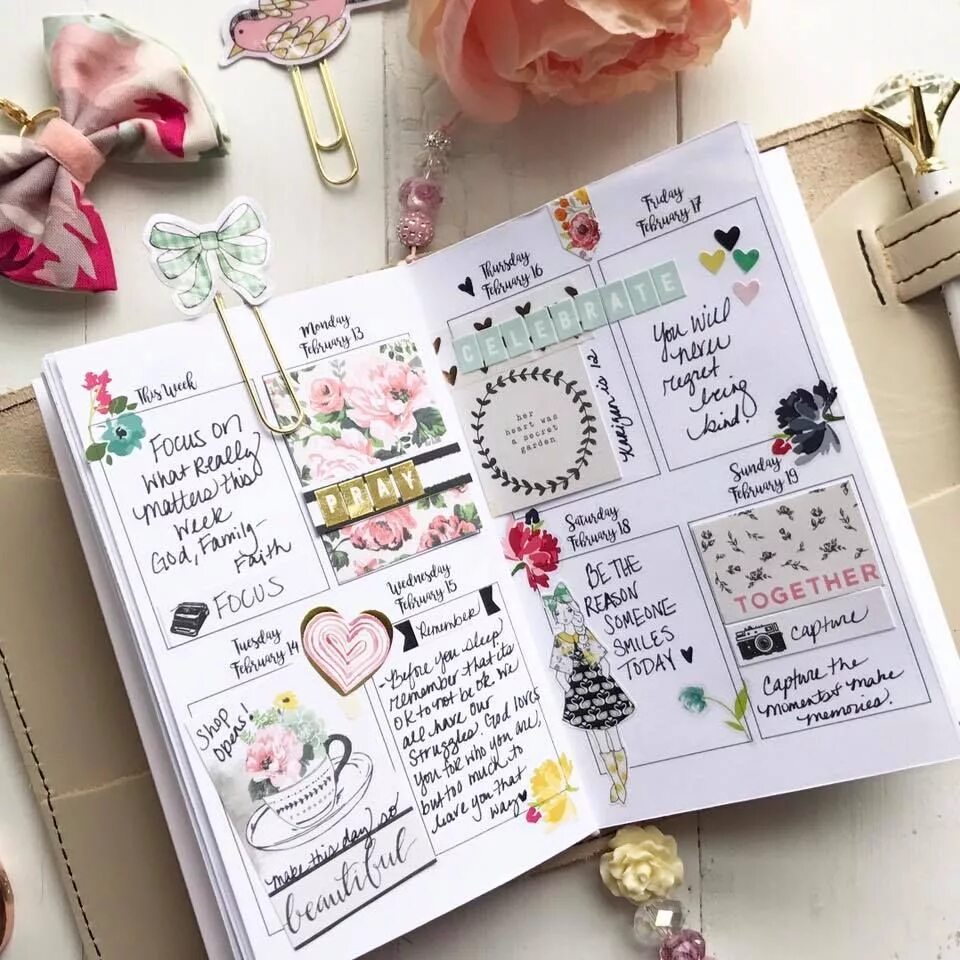 This Week
Focus on
What Really
matters this
week
God, Family-
Faith
FOCUS
Monday
February 13
PRAY
Tuesday
February 14
Shop
opens!
make this day so
beautiful
Wednesday
February 15
Remember
-Before you sleep,
remember that its
ok to not be ok. We
all have our
struggles. God loves
you for who you are,
but too much to
leave you that
way
Thursday
February 16
CELEBRATE
her
heart was
a secret
garden
Friday
February 17
You will
never
regret
being
kind!
Saturday
February 18
BE THE
REASON
SOMEONE
SMILES
TODAY
Sunday
February 19
TOGETHER
capture
Capture the
moments & make
memories.